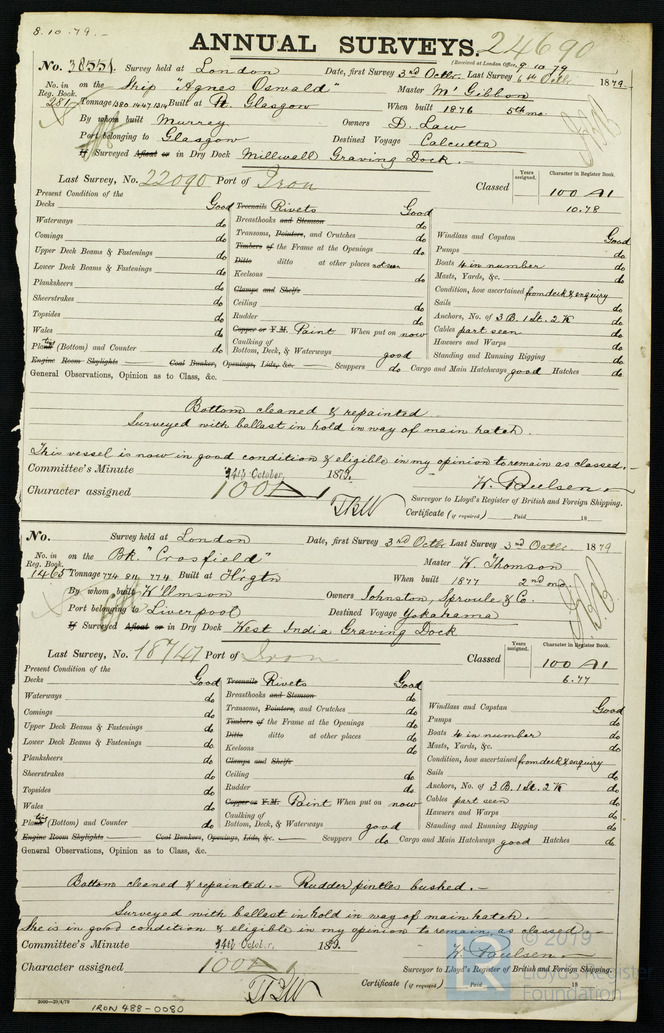 8.10.79.
ANNUAL SURVEYS. 24690
(Received at London Office, 9.10.79
No. 38551 Survey held at London Date, first Survey 3rd Octbr Last Survey 6th Octbr 1879
No. in Reg. Book. on the Ship "Agnes Oswald" Master Mc Gibbon
281 Tonnage 1380 1447 1314 Built at Pt. Glasgow When built 1876 5th mo.
By whom built Murray Owners D. Law
Port belonging to Glasgow Destined Voyage Calcutta
If Surveyed Afloat or in Dry Dock Millwall Graving Dock.
Last Survey, No. 22090 Port of Iron Classed Years assigned. Character in Register Book.
100 A1
10.78
Present Condition of the
Decks Good Treenails Rivets Good
Waterways do Breasthooks and Stemson do Windlass and Capstan Good
Comings do Transoms, Pointers, and Crutches do Pumps do
Upper Deck Beams & Fastenings do Timbers of the Frame at the Openings do Boats 4 in number do
Lower Deck Beams & Fastenings do Ditto ditto at other places not seen Masts, Yards, &c. do
Planksheers do Keelsons do Condition, how ascertained from deck & enquiry
Sheerstrakes do Clamps and Shelfs Sails do
Topsides do Ceiling do Anchors, No. of 3 B. 1 St. 2 K do
Wales do Rudder do Cables part seen do
Plating (Bottom) and Counter do Copper or Y.M. Paint When put on now Hawsers and Warps do
Caulking of Bottom, Deck, & Waterways good Standing and Running Rigging do
Engine Room Skylights Coal Bunker, Openings, Lids, &c. Scuppers do Cargo and Main Hatchways good Hatches do
General Observations, Opinion as to Class, &c.
Bottom cleaned & repainted
Surveyed with ballast in hold in way of main hatch.
This vessel is now in good condition & eligible in my opinion to remain as classed.
Committee's Minute 14th October, 1879.
Character assigned 100 A1
W. Paulsen
Surveyor to Lloyd's Register of British and Foreign Shipping.
Certificate (if required) Paid 18
No. Survey held at London Date, first Survey 3rd Octbr Last Survey 3rd Octbr 1879
No. in Reg. Book. on the Bk. "Crosfield" Master W. Thomson
1465 Tonnage 774 811 774 Built at Whvgtn When built 1877 2nd mo.
By whom built Owners Johnston, Sproule & Co.
Port belonging to Liverpool Destined Voyage Yokahama
If Surveyed Afloat or in Dry Dock West India Graving Dock
Last Survey, No. 18747 Port of Iron Classed Years assigned. Character in Register Book.
100 A1
6.77
Present Condition of the
Decks Good Treenails Rivets Good
Waterways do Breasthooks and Stemson do Windlass and Capstan Good
Comings do Transoms, Pointers, and Crutches do Pumps do
Upper Deck Beams & Fastenings do Timbers of the Frame at the Openings do Boats 4 in number do
Lower Deck Beams & Fastenings do Ditto ditto at other places do Masts, Yards, &c. do
Planksheers do Keelsons do Condition, how ascertained from deck & enquiry
Sheerstrakes do Clamps and Shelfs Sails do
Topsides do Ceiling do Anchors, No. of 3 B. 1 St. 2 K do
Wales do Rudder do Cables part seen do
Plating (Bottom) and Counter do Copper or Y.M. Paint When put on now Hawsers and Warps do
Caulking of Bottom, Deck, & Waterways good Standing and Running Rigging do
Engine Room Skylights Coal Bunkers, Openings, Lids, &c. Scuppers do Cargo and Main Hatchways good Hatches do
General Observations, Opinion as to Class, &c.
Bottom cleaned & repainted. - Rudder pintles bushed. -
Surveyed with ballast in hold in way of main hatch.
She is in good condition & eligible in my opinion to remain, as classed.
Committee's Minute 14th October, 1879.
Character assigned 100 A1
W. Paulsen
Surveyor to Lloyd's Register of British and Foreign Shipping.
Certificate (if required) Paid 18
2000-29/4/79
IRON 488-0080
© 2019
Lloyd's Register
Foundation